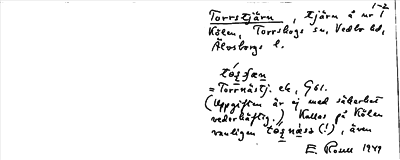 1-2
Torrstjärn, tjärn å nr 1
Kölen, Torrskogs sn, Vedbo hd,
Älvsborgs l.
= Torrnästj. ek, G61.
(Uppgiften är ej med säkerhet
vederhäftig.) Kallas på Kölen
vanligen (!), även
E. Rosell 1949